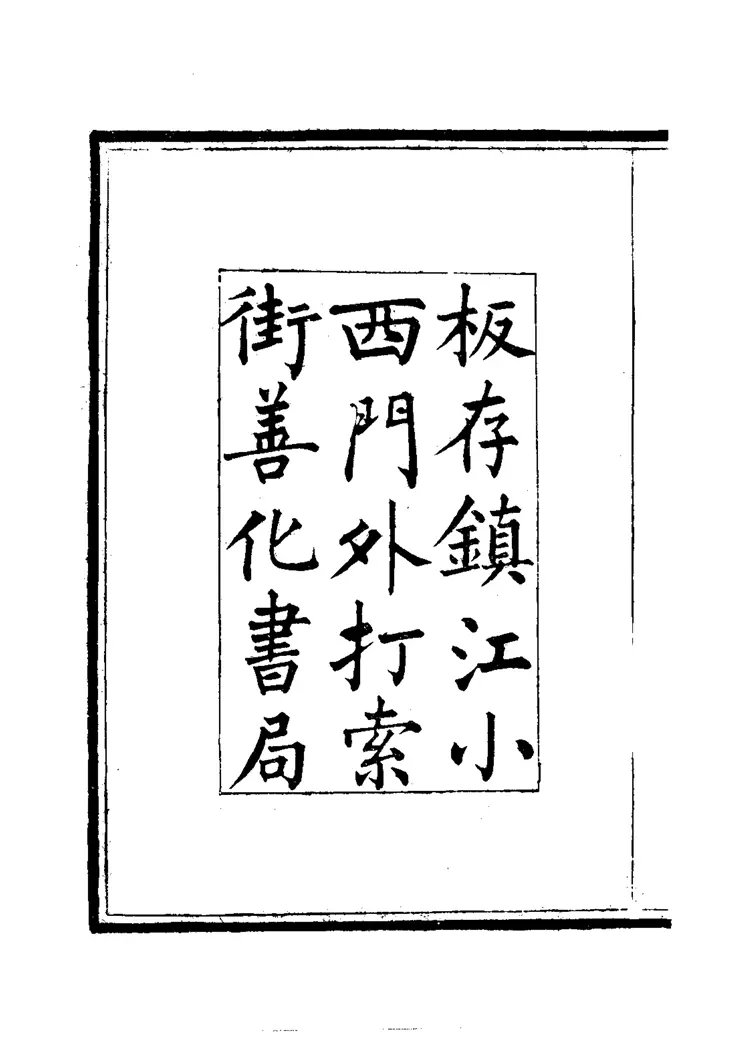 板存鎮江小
西門外打索
街善化書局